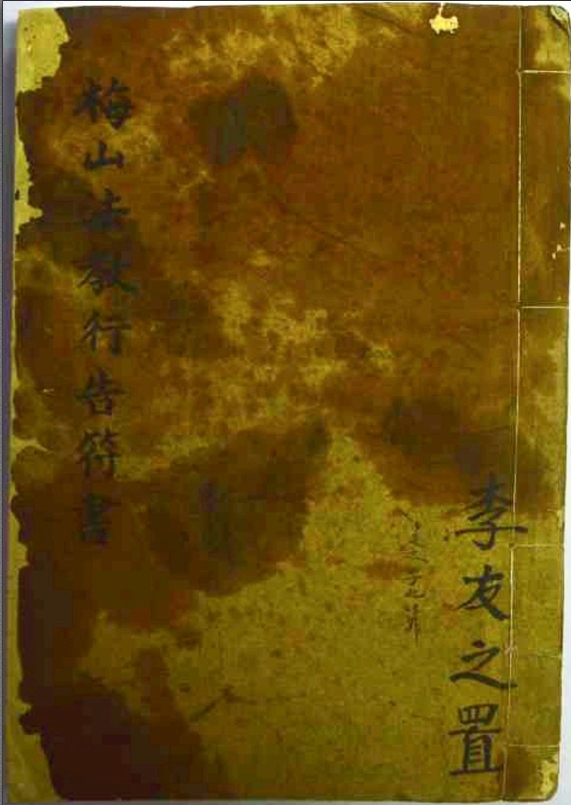 李友之置
梅山法教行告符書